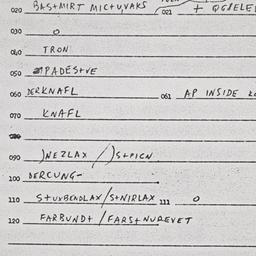 020 BAS+MIRT MIC+U,VAKS 021 +
030 0
040 TRON
050 PADES+VE
060 DERKNAFL 061 AP INSIDE
070 KNAFL
090 )NEZLAX / )S+PICN
100 DERCUNG-
110 S+UXBENDLAX/S+NIRLAX 111 0
120 FARBUND+ / FARS+NUREVET